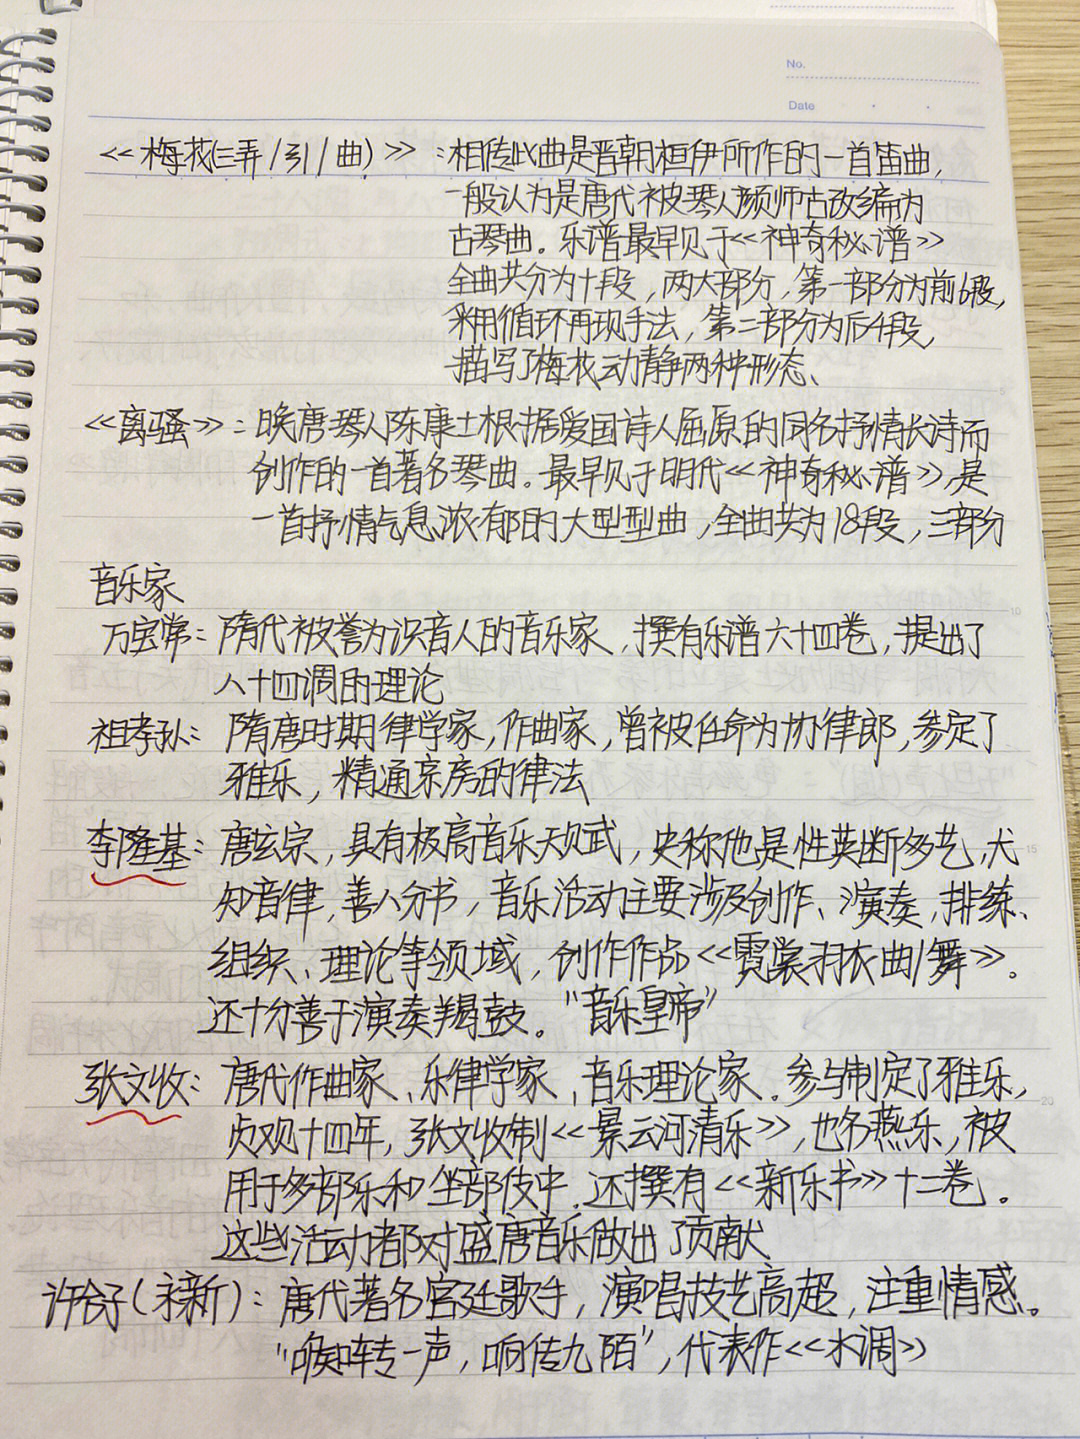 No.
Date
《梅花(三弄/引/曲)》：相传此曲是晋朝桓伊所作的一首笛曲，
一般认为是唐代被琴人颜师古改编为
古琴曲。乐谱最早见于《神奇秘谱》
全曲共分为十段，两大部分，第一部分为前6段，
采用循环再现手法，第二部分为后4段，
描写了梅花动静两种形态、
《离骚》：晚唐琴人陈康士根据爱国诗人屈原的同名抒情长诗而
创作的一首著名琴曲。最早见于明代《神奇秘谱》，是
一首抒情气息浓郁的大型型曲，全曲共为18段，三部分
音乐家
万宝常：隋代被誉为识音人的音乐家，撰有乐谱六十四卷，提出了
八十四调的理论
祖孝孙：隋唐时期律学家，作曲家，曾被任命为协律郎，参定了
雅乐，精通京房的律法
李隆基：唐玄宗，具有极高音乐天赋，史称他是性英断多艺，尤
知音律，善八分书，音乐活动主要涉及创作、演奏，排练、
组织、理论等领域，创作作品《霓裳羽衣曲/舞》。
还十分善于演奏羯鼓。"音乐皇帝"
张文收：唐代作曲家、乐律学家、音乐理论家。参与制定了雅乐，
贞观十四年，张文收制《景云河清乐》，也名燕乐，被
用于多部乐和坐部伎中，还撰有《新乐书》十二卷。
这些活动都对盛唐音乐做出了贡献
许合子（永新）：唐代著名宫廷歌手，演唱技艺高超，注重情感。
转一声，响传九陌"，代表作《水调》
10
15
20